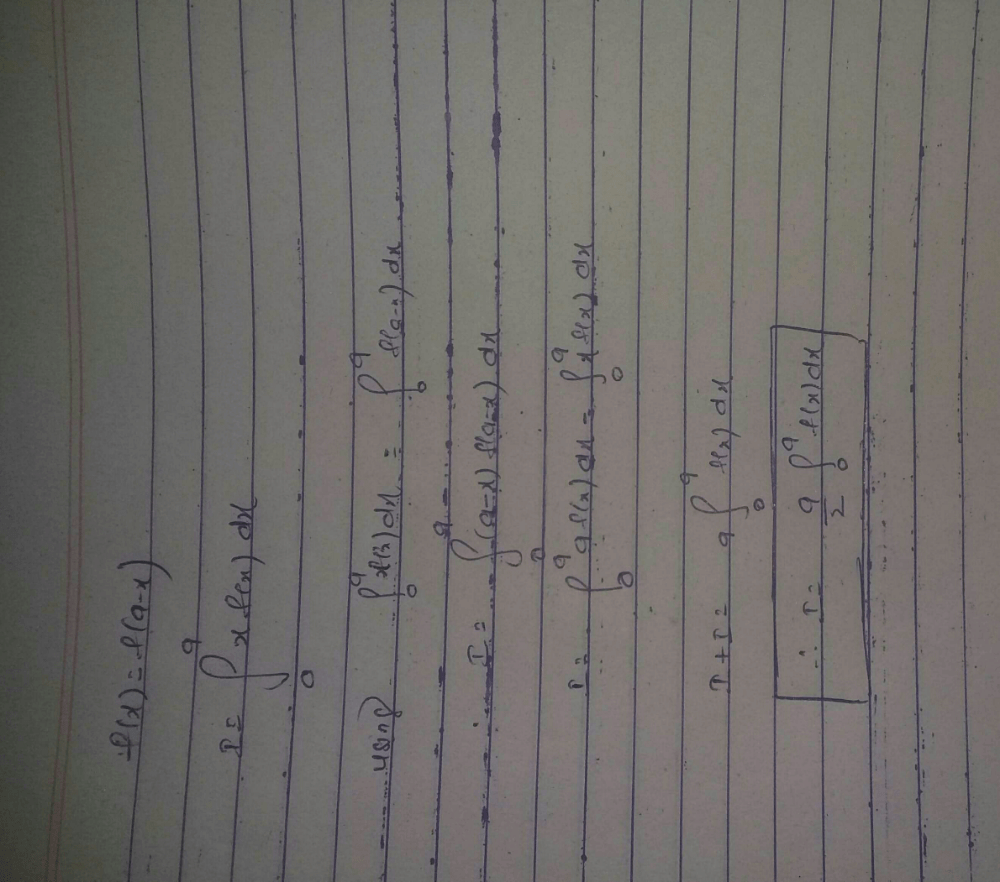 f(x) = f(a-x)
I = ∫₀ᵃ x f(x) dx
using ∫₀ᵃ f(x) dx = ∫₀ᵃ f(a-x) dx
I = ∫₀ᵃ (a-x) f(a-x) dx
I = ∫₀ᵃ a f(x) dx - ∫₀ᵃ x f(x) dx
I + I = a ∫₀ᵃ f(x) dx
∴ I = a/2 ∫₀ᵃ f(x) dx